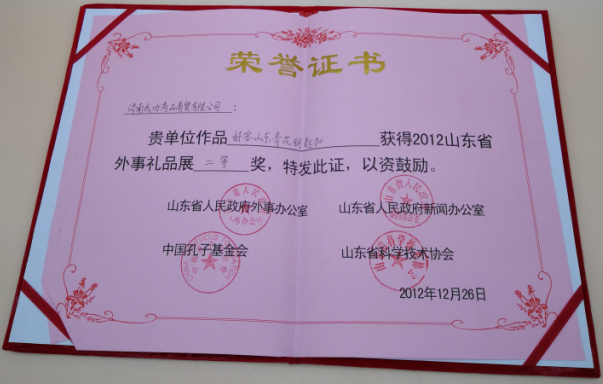 荣誉证书
济南成功商品商贸有限公司：
贵单位作品 好客山东青花钥匙扣 获得2012山东省
外事礼品展 二等 奖，特发此证，以资鼓励。
山东省人民政府外事办公室 山东省人民政府新闻办公室
中国孔子基金会 山东省科学技术协会
2012年12月26日